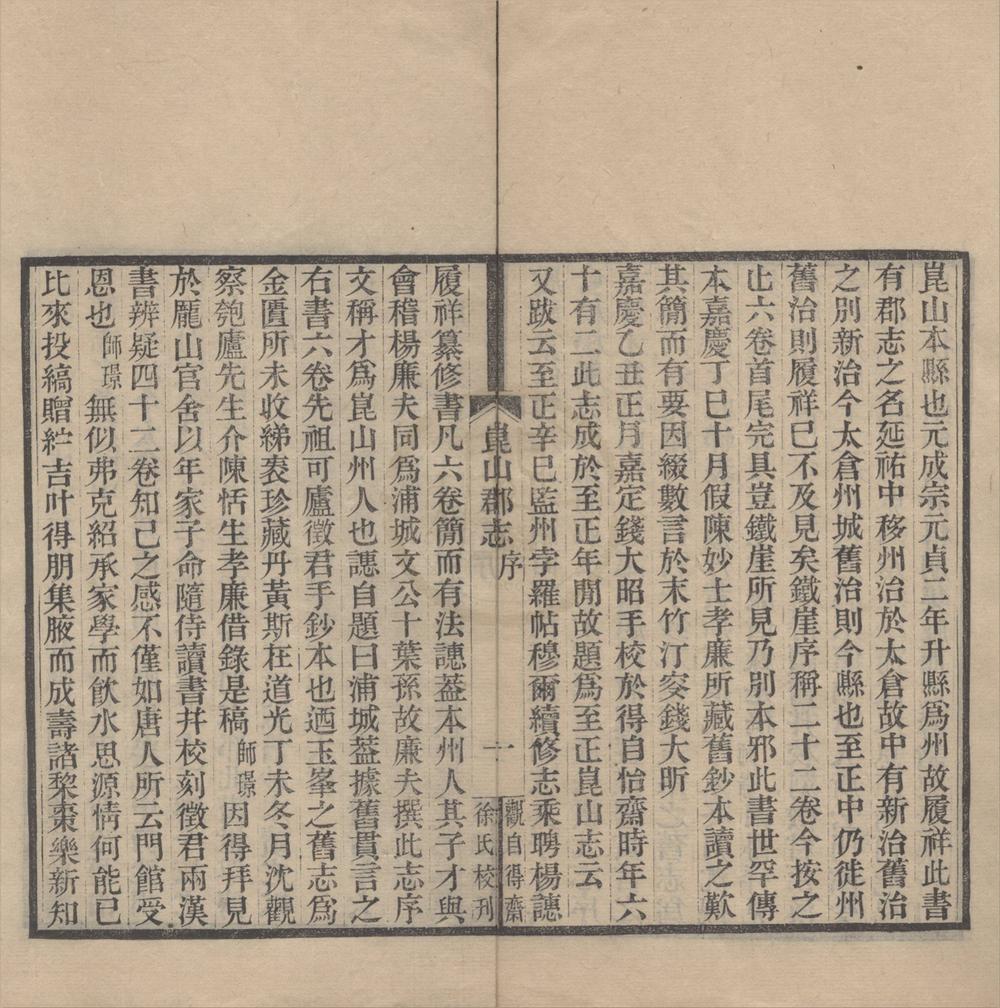 崑山本縣也元成宗元貞二年升縣爲州故履祥此書
有郡志之名延祐中移州治於太倉故中有新治舊治
之別新治今太倉州城舊治則今縣也至正中仍徙州
舊治則履祥已不及見矣鐵崖序稱二十二卷今按之
止六卷首尾完具豈鐵崖所見乃別本邪此書世罕傳
本嘉慶丁巳十月假陳妙士孝廉所藏舊鈔本讀之歎
其簡而有要因綴數言於末竹汀㝔錢大昕
嘉慶乙丑正月嘉定錢大昭手校於得自怡齋時年六
十有二此志成於至正年閒故題爲至正崑山志云
又跋云至正辛巳監州孛羅帖穆爾續修志乘聘楊譓
崑山郡志 序
一
觀自得齋
徐氏校刊
履祥纂修書凡六卷簡而有法譓葢本州人其子才與
會稽楊廉夫同爲浦城文公十葉孫故廉夫撰此志序
文稱才爲崑山州人也譓自題曰浦城葢據舊貫言之
右書六卷先祖可廬徵君手鈔本也迺玉峯之舊志爲
金匱所未收綈袠珍藏丹黃斯在道光丁未冬月沈觀
察匏廬先生介陳恬生孝廉借錄是稿師璟因得拜見
於龎山官舍以年家子命隨侍讀書幷校刻徵君兩漢
書辨疑四十二卷知己之感不僅如唐人所云門館受
恩也師璟無似弗克紹承家學而飮水思源情何能已
比來投縞贈紵吉叶得朋集腋而成壽諸棃棗樂新知